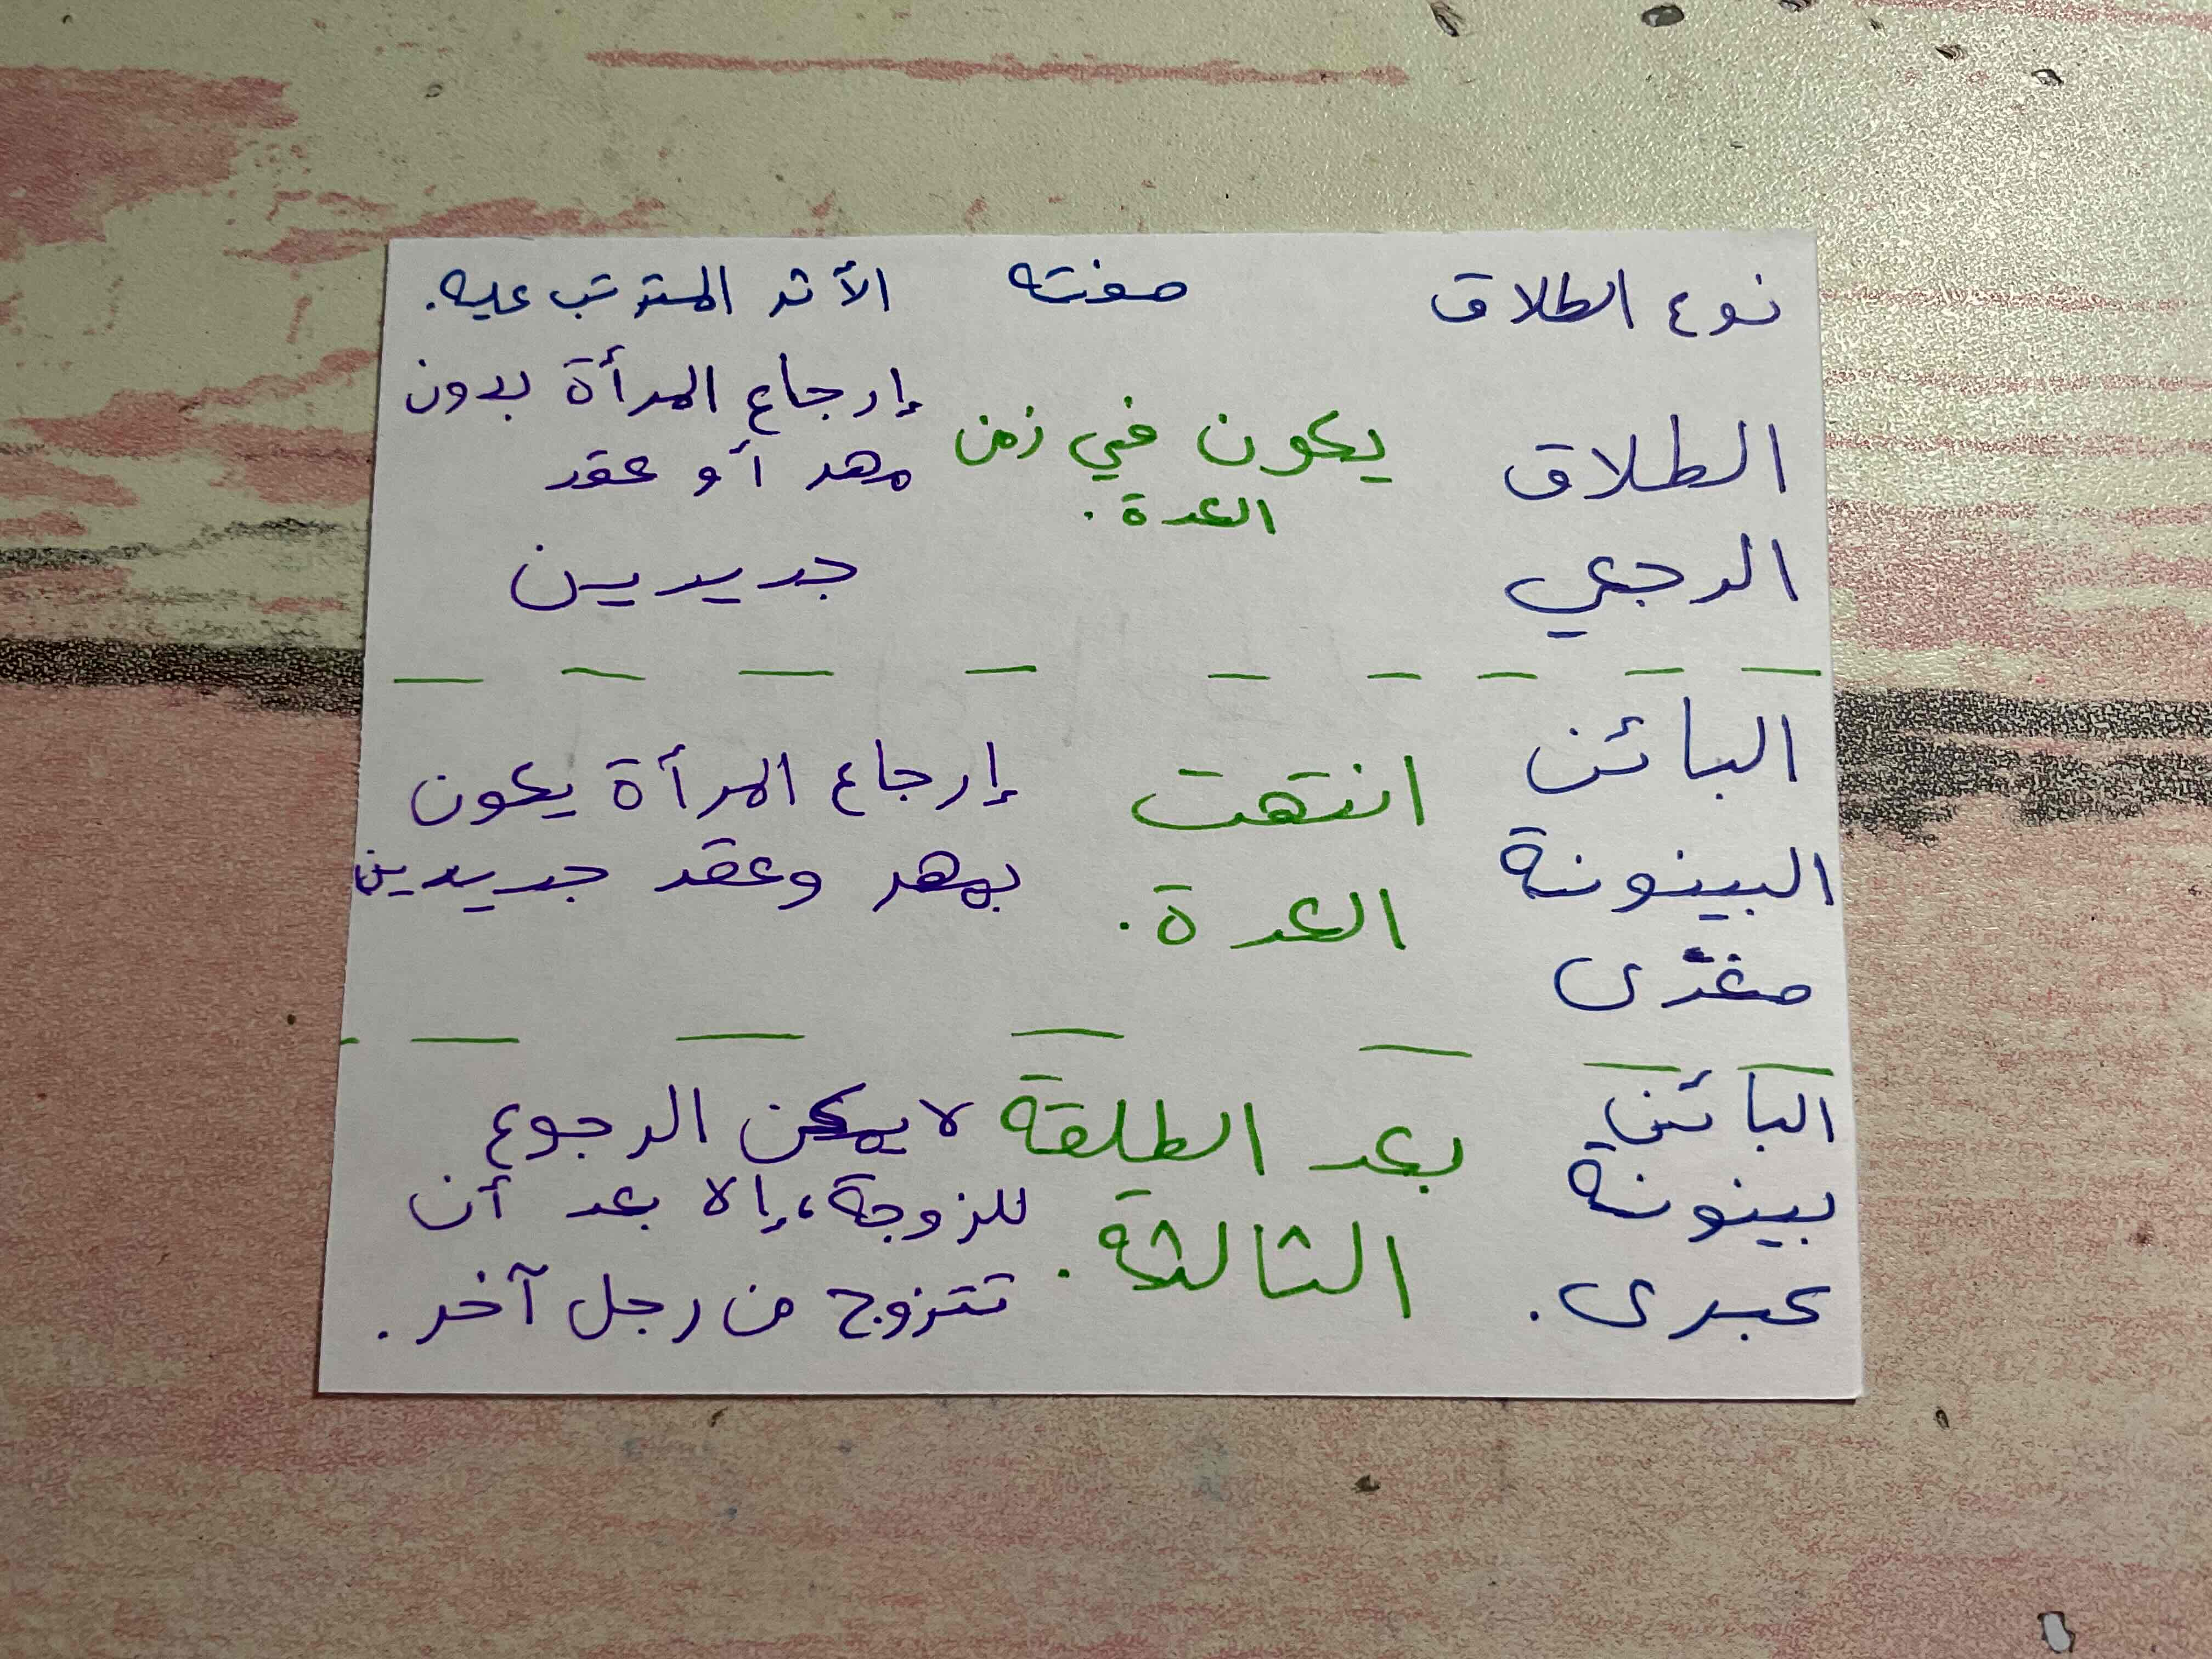 نوع الطلاق صفته الأثر المترتب عليه.
الطلاق
الرجعي
يكون في زمن
العدة.
إرجاع المرأة بدون
مهر أو عقد
جديدين
البائن
البينونة
صغرى
انتهت
العدة.
إرجاع المرأة يكون
بمهر وعقد جديدين
البائن
بينونة
كبرى.
بعد الطلقة
الثالثة.
لا يمكن الرجوع
للزوجة، إلا بعد أن
تتزوج من رجل آخر.